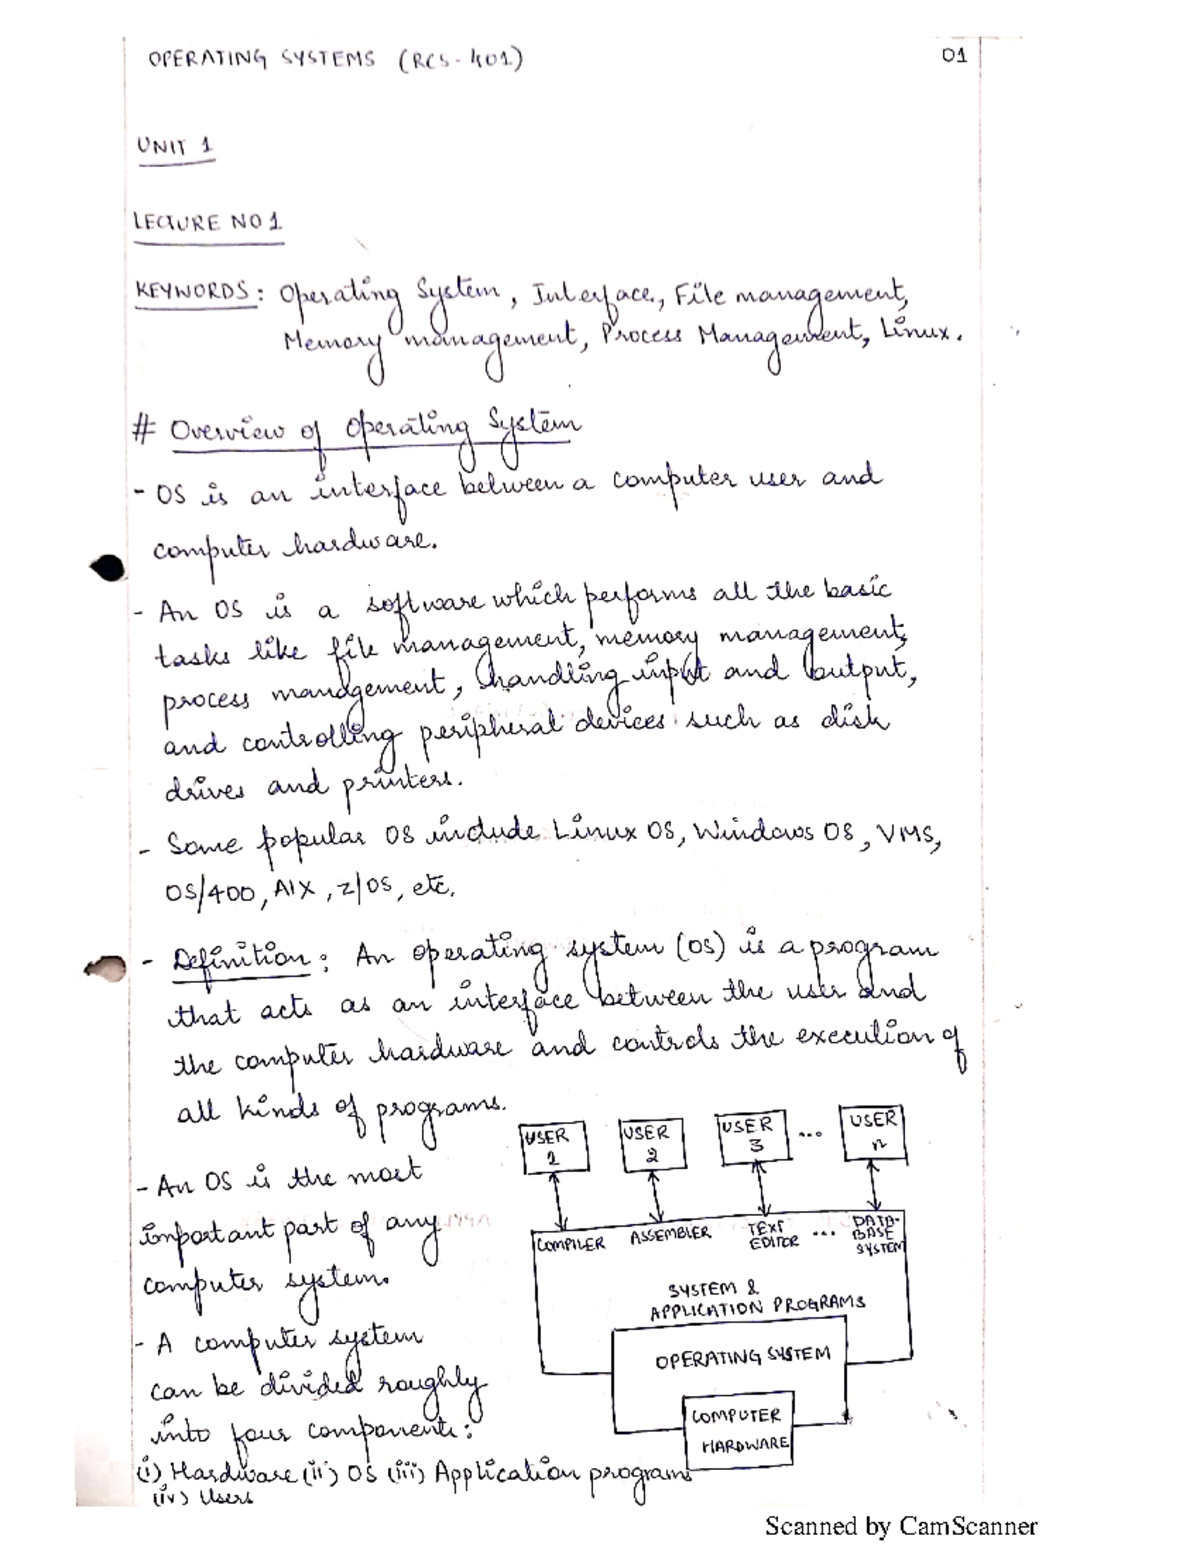 OPERATING SYSTEMS (RCS-401) 01
UNIT 1
LECTURE NO 1
KEYWORDS: Operating System, Interface, File management,
Memory management, Process Management, Linux.
# Overview of Operating System
- OS is an interface between a computer user and
computer hardware.
- An OS is a software which performs all the basic
tasks like file management, memory management,
process management, handling input and output,
and controlling peripheral devices such as disk
drives and printers.
- Some popular OS include Linux OS, Windows OS, VMS,
OS/400, AIX, z/OS, etc.
- Definition: An operating system (OS) is a program
that acts as an interface between the user and
the computer hardware and controls the execution of
all kinds of programs.
- An OS is the most
important part of any
computer system.
- A computer system
can be divided roughly
into four components:
(i) Hardware (ii) OS (iii) Application programs
(iv) Users
USER USER USER ... USER
1 2 3 n
COMPILER ASSEMBLER TEXT EDITOR ... DATA-
BASE
SYSTEM
SYSTEM &
APPLICATION PROGRAMS
OPERATING SYSTEM
COMPUTER
HARDWARE
Scanned by CamScanner